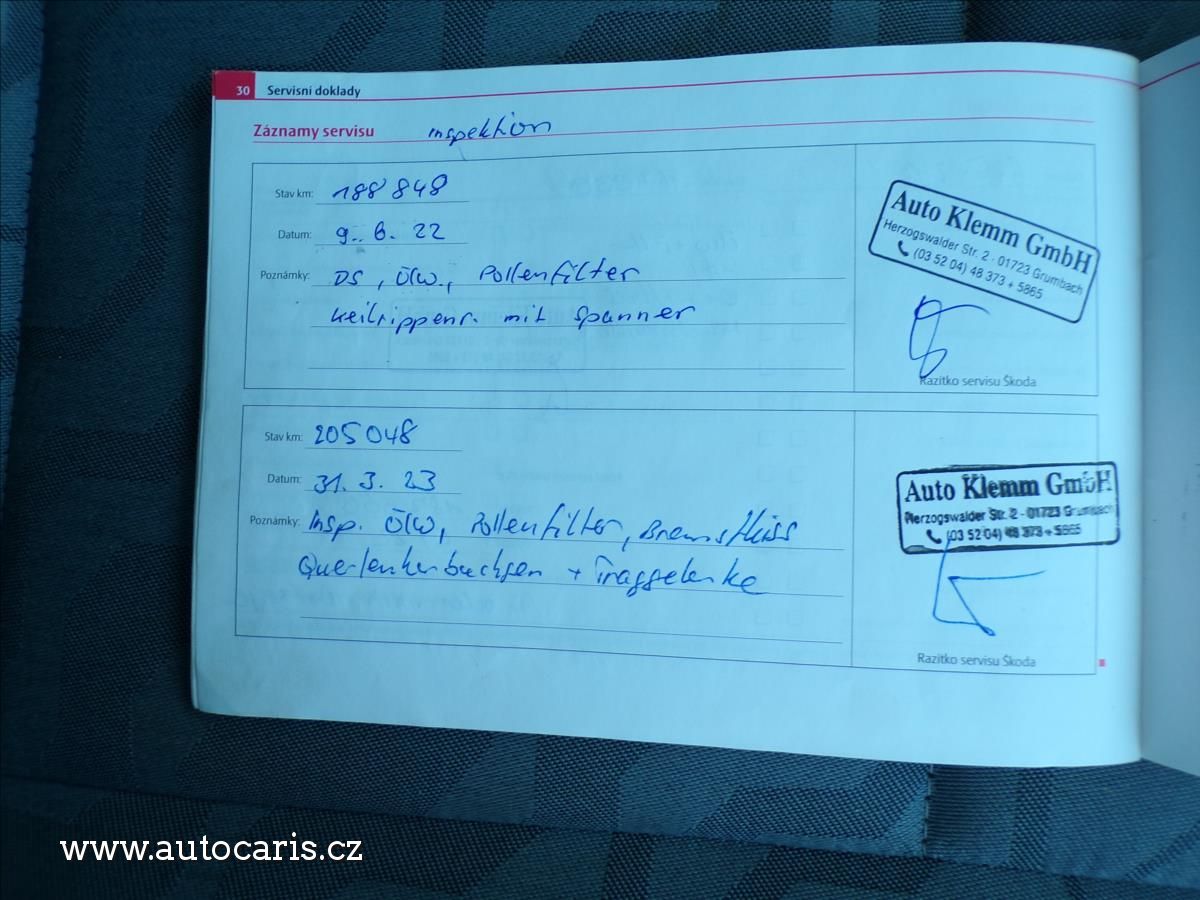 30 Servisní doklady
Záznamy servisu Inspektion
Stav km: 188 848
Datum: 9. 6. 22
Poznámky: DS, ÖlW., Pollenfilter
Keilrippenr. mit Spanner
Auto Klemm GmbH
Herzogswalder Str. 2 · 01723 Grumbach
(03 52 04) 48 373 + 5865
Razítko servisu Škoda
Stav km: 205 048
Datum: 31. 3. 23
Poznámky: Insp. ÖlW, Pollenfilter, Bremsfluss
Querlenkerbuchsen + Traggelenke
Auto Klemm GmbH
Herzogswalder Str. 2 · 01723 Grumbach
(03 52 04) 48 373 + 5865
Razítko servisu Škoda
www.autocaris.cz